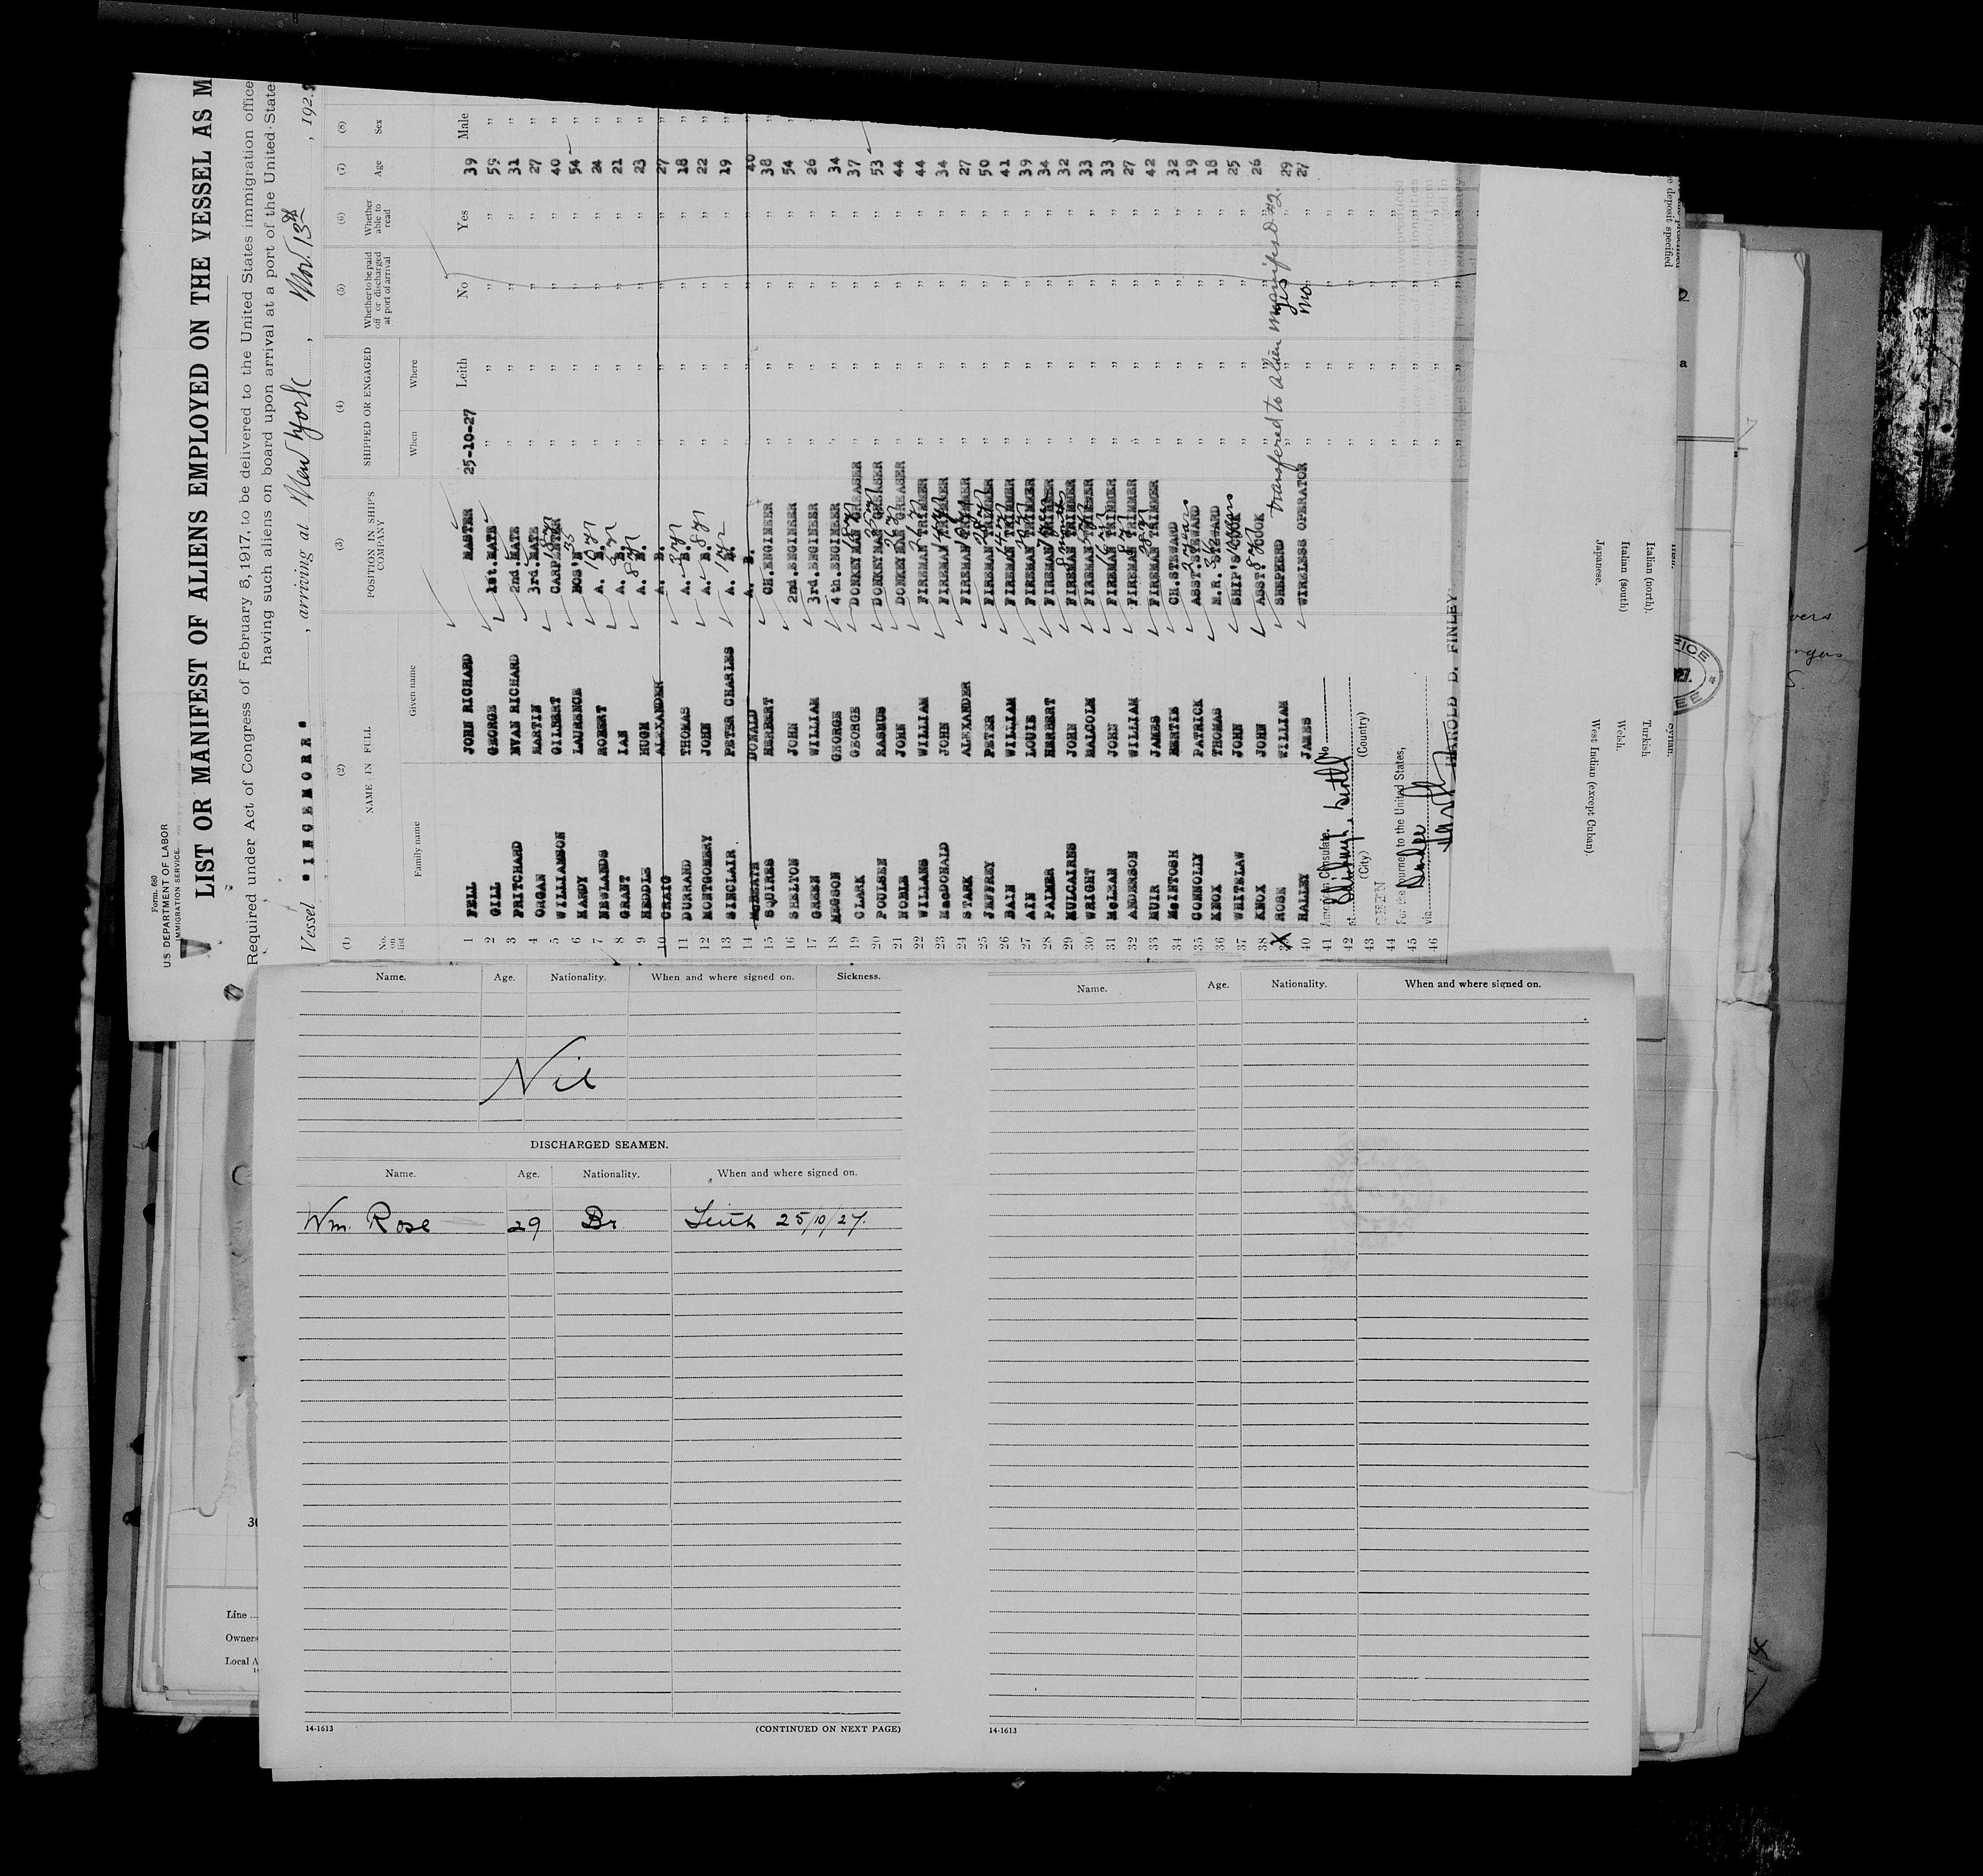 Form 680
U.S DEPARTMENT OF LABOR
IMMIGRATION SERVICE
LIST OR MANIFEST OF ALIENS EMPLOYED ON THE VESSEL AS M
Required under Act of Congress of February 5, 1917, to be delivered to the United States immigration office
having such aliens on board upon arrival at a port of the United States
Vessel "INCEMORE", arriving at New York, Nov. 13th, 192
(1) (2) (3) (4) (5) (6) (7) (8)
No. on list NAME IN FULL POSITION IN SHIP'S COMPANY SHIPPED OR ENGAGED Whether to be paid off or discharged at port of arrival Whether able to read Age Sex
Family name Given name When Where
1 FELL JOHN RICHARD MASTER 25-10-27 Leith No Yes 39 Male
2 GILL GEORGE 1st.MATE " " " " 59 "
3 PRITCHARD EVAN RICHARD 2nd.MATE " " " " 31 "
4 ORGAN MARTIN 3rd.MATE " " " " 27 "
5 WILLIAMSON GILBERT CARPENTER " " " " 40 "
6 HARDY LAURENCE BOS'N 35 " " " " 54 "
7 NEWLANDS ROBERT A. B. " " " " 24 "
8 GRANT IAN A. B. " " " " 21 "
9 HEDDLE HUGH A. B. 8yr " " " " 23 "
10 CRAIG ALEXANDER A. B. " " " " 27 "
11 DURRAND THOMAS A. B. " " " " 18 "
12 MONTGOMERY JOHN A. B. 8yr " " " " 22 "
13 SINCLAIR PETER CHARLES A. B. 1yr " " " " 19 "
14 McBEATH DONALD A. B. " " " " 40 "
15 SQUIRES HERBERT CH.ENGINEER " " " " 38 "
16 SHELTON JOHN 2nd.ENGINEER " " " " 54 "
17 GREEN WILLIAM 3rd.ENGINEER " " " " 26 "
18 MEGSON GEORGE 4th.ENGINEER " " " " 34 "
19 CLARK GEORGE DONKEYMAN GREASER " " " " 37 "
20 POULSEN RASMUS DONKEYMAN GREASER " " " " 53 "
21 NOBLE JOHN DONKEYMAN GREASER " " " " 44 "
22 WILLANS WILLIAM FIREMAN TRIMMER " " " " 44 "
23 MacDONALD JOHN FIREMAN TRIMMER " " " " 34 "
24 STARK ALEXANDER FIREMAN TRIMMER " " " " 27 "
25 JEFFREY PETER FIREMAN TRIMMER " " " " 50 "
26 BAIN WILLIAM FIREMAN TRIMMER " " " " 41 "
27 AIN LOUIE FIREMAN TRIMMER " " " " 39 "
28 PALMER HERBERT FIREMAN TRIMMER " " " " 34 "
29 MULCAIRNS JOHN FIREMAN TRIMMER " " " " 32 "
30 WRIGHT MALCOLM FIREMAN TRIMMER " " " " 33 "
31 McLEAN JOHN FIREMAN TRIMMER " " " " 33 "
32 ANDERSON WILLIAM FIREMAN TRIMMER " " " " 27 "
33 MUIR JAMES FIREMAN TRIMMER " " " " 42
34 McINTOSH BERTIE CH.STEWARD " " " " 32
35 CONNOLLY PATRICK ASST.STEWARD " " " " 19
36 KNOX THOMAS M.R. STEWARD " " " " 18
37 WHITELAW JOHN SHIP'S COOK " " " " 25
38 KNOX JOHN ASST. COOK " " " " 26
X ROSE WILLIAM SHEPHERD transfered to alien manifest #2. yes 29
40 HALLEY JAMES WIRELESS OPERATOR no 27
41 American Consulate. No
42 at Edinburgh, Leith
43 (City) (Country)
44 SEEN
45 For the journey to the United States,
46 via Dundee
HAROLD D. FINLEY
Japanese.
Italian (south)
Italian (north).
West Indian (except Cuban).
Welsh.
Turkish
Syrian.
e deposit specified
Name. Age. Nationality. When and where signed on. Sickness.
Nil
DISCHARGED SEAMEN.
Name. Age. Nationality. When and where signed on.
Wm. Rose 29 Br Leith 25/10/27.
14-1613 (CONTINUED ON NEXT PAGE)
Name. Age. Nationality. When and where signed on.
14-1613
Line
Owners
Local A